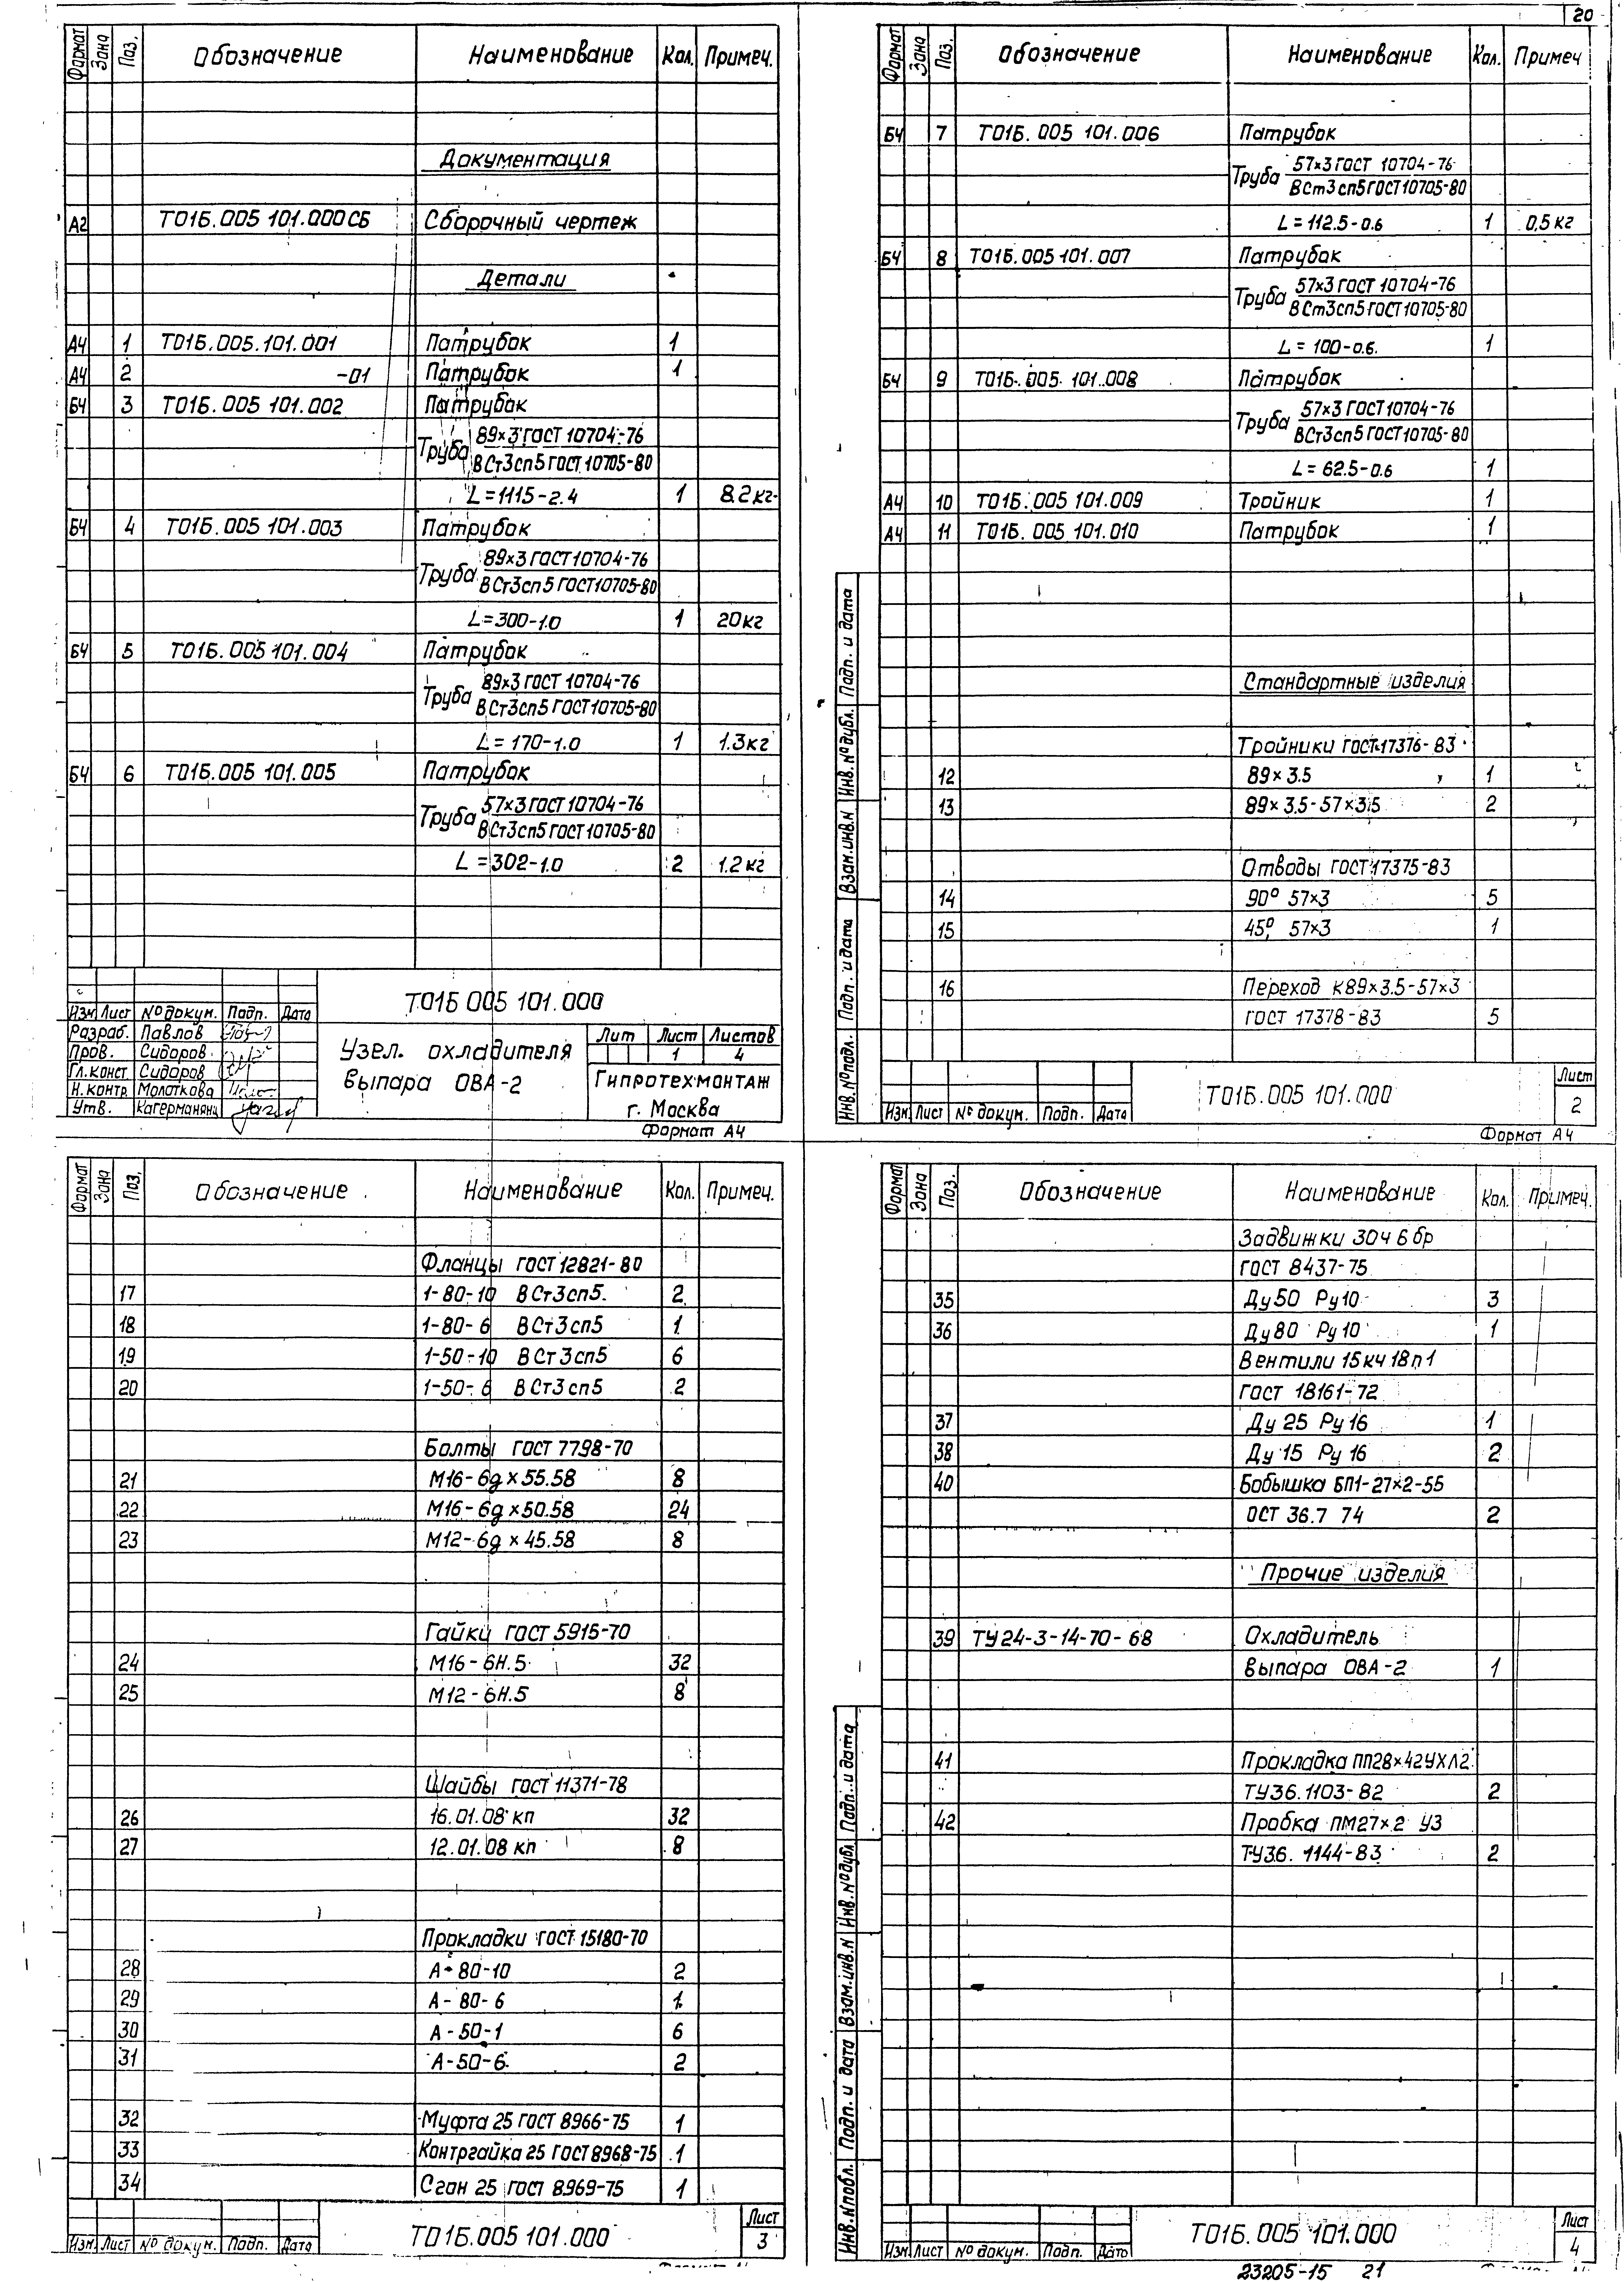 20
Формат Зона Поз. Обозначение Наименование Кол. Примеч.
Документация
А2 Т01Б.005 101.000 СБ Сборочный чертеж
Детали
А4 1 Т01Б.005.101.001 Патрубок 1
А4 2 -01 Патрубок 1
Б4 3 Т01Б.005 101.002 Патрубок
Труба 89×3 ГОСТ 10704-76
ВСт3сп5 ГОСТ 10705-80
L=1115-2.4 1 8.2кг
Б4 4 Т01Б.005 101.003 Патрубок
Труба 89×3 ГОСТ 10704-76
ВСт3сп5 ГОСТ 10705-80
L=300-1.0 1 20кг
Б4 5 Т01Б.005 101.004 Патрубок
Труба 89×3 ГОСТ 10704-76
ВСт3сп5 ГОСТ 10705-80
L=170-1.0 1 1.3кг
Б4 6 Т01Б.005 101.005 Патрубок
Труба 57×3 ГОСТ 10704-76
ВСт3сп5 ГОСТ 10705-80
L=302-1.0 2 1.2кг
Т01Б 005 101.000
Изм Лист № докум. Подп. Дата
Разраб. Павлов
Пров. Сидоров
Гл.конст Сидоров
Н.контр. Молоткова
Утв. Кагерманянц
Узел охладителя
выпара ОВА-2
Лит Лист Листов
1 4
Гипротехмонтаж
г. Москва
Формат А4
Формат Зона Поз. Обозначение Наименование Кол. Примеч
Б4 7 Т01Б.005 101.006 Патрубок
Труба 57×3 ГОСТ 10704-76
ВСт3сп5 ГОСТ 10705-80
L=112.5-0.6 1 0,5кг
Б4 8 Т01Б.005 101.007 Патрубок
Труба 57×3 ГОСТ 10704-76
ВСт3сп5 ГОСТ 10705-80
L=100-0.6. 1
Б4 9 Т01Б.005 101.008 Патрубок
Труба 57×3 ГОСТ 10704-76
ВСт3сп5 ГОСТ 10705-80
L=62.5-0.6 1
А4 10 Т01Б.005 101.009 Тройник 1
А4 11 Т01Б.005 101.010 Патрубок 1
Стандартные изделия
Тройники ГОСТ 17376-83
12 89×3.5 1
13 89×3.5-57×3.5 2
Отводы ГОСТ 17375-83
14 90° 57×3 5
15 45° 57×3 1
16 Переход К89×3.5-57×3
ГОСТ 17378-83 5
Инв.№подл. Подп. и дата Взам.инв.N Инв.№дубл. Подп. и дата
Изм Лист № докум. Подп. Дата
Т01Б.005 101.000
Лист
2
Формат А4
Формат Зона Поз. Обозначение Наименование Кол. Примеч.
Фланцы ГОСТ 12821-80
17 1-80-10 ВСт3сп5. 2
18 1-80-6 ВСт3сп5 1
19 1-50-10 ВСт3сп5 6
20 1-50-6 ВСт3сп5 2
Болты ГОСТ 7798-70
21 М16-6g×55.58 8
22 М16-6g×50.58 24
23 М12-6g×45.58 8
Гайки ГОСТ 5915-70
24 М16-6Н.5 32
25 М12-6Н.5 8
Шайбы ГОСТ 11371-78
26 16.01.08 кп 32
27 12.01.08 кп 8
Прокладки ГОСТ 15180-70
28 А-80-10 2
29 А-80-6 1
30 А-50-1 6
31 А-50-6 2
32 Муфта 25 ГОСТ 8966-75 1
33 Контргайка 25 ГОСТ 8968-75 1
34 Сгон 25 ГОСТ 8969-75 1
Изм. Лист № докум. Подп. Дата
Т01Б.005 101.000
Лист
3
Формат Зона Поз. Обозначение Наименование Кол. Примеч.
Задвижки 30ч 6бр
ГОСТ 8437-75
35 Ду50 Ру10 3
36 Ду80 Ру10 1
Вентили 15кч 18п1
ГОСТ 18161-72
37 Ду 25 Ру 16 1
38 Ду 15 Ру 16 2
40 Бобышка БП1-27×2-55
ОСТ 36.7 74 2
Прочие изделия
39 ТУ24-3-14-70-68 Охладитель
выпара ОВА-2 1
41 Прокладка ПП28×42УХЛ2
ТУ36.1103-82 2
42 Пробка ПМ27×2 У3
ТУ36. 1144-83 2
Инв.№подл. Подп. и дата Взам.инв.N Инв.№дубл. Подп. и дата
Изм Лист № докум. Подп. Дата
Т01Б.005 101.000
Лист
4
23205-15 21